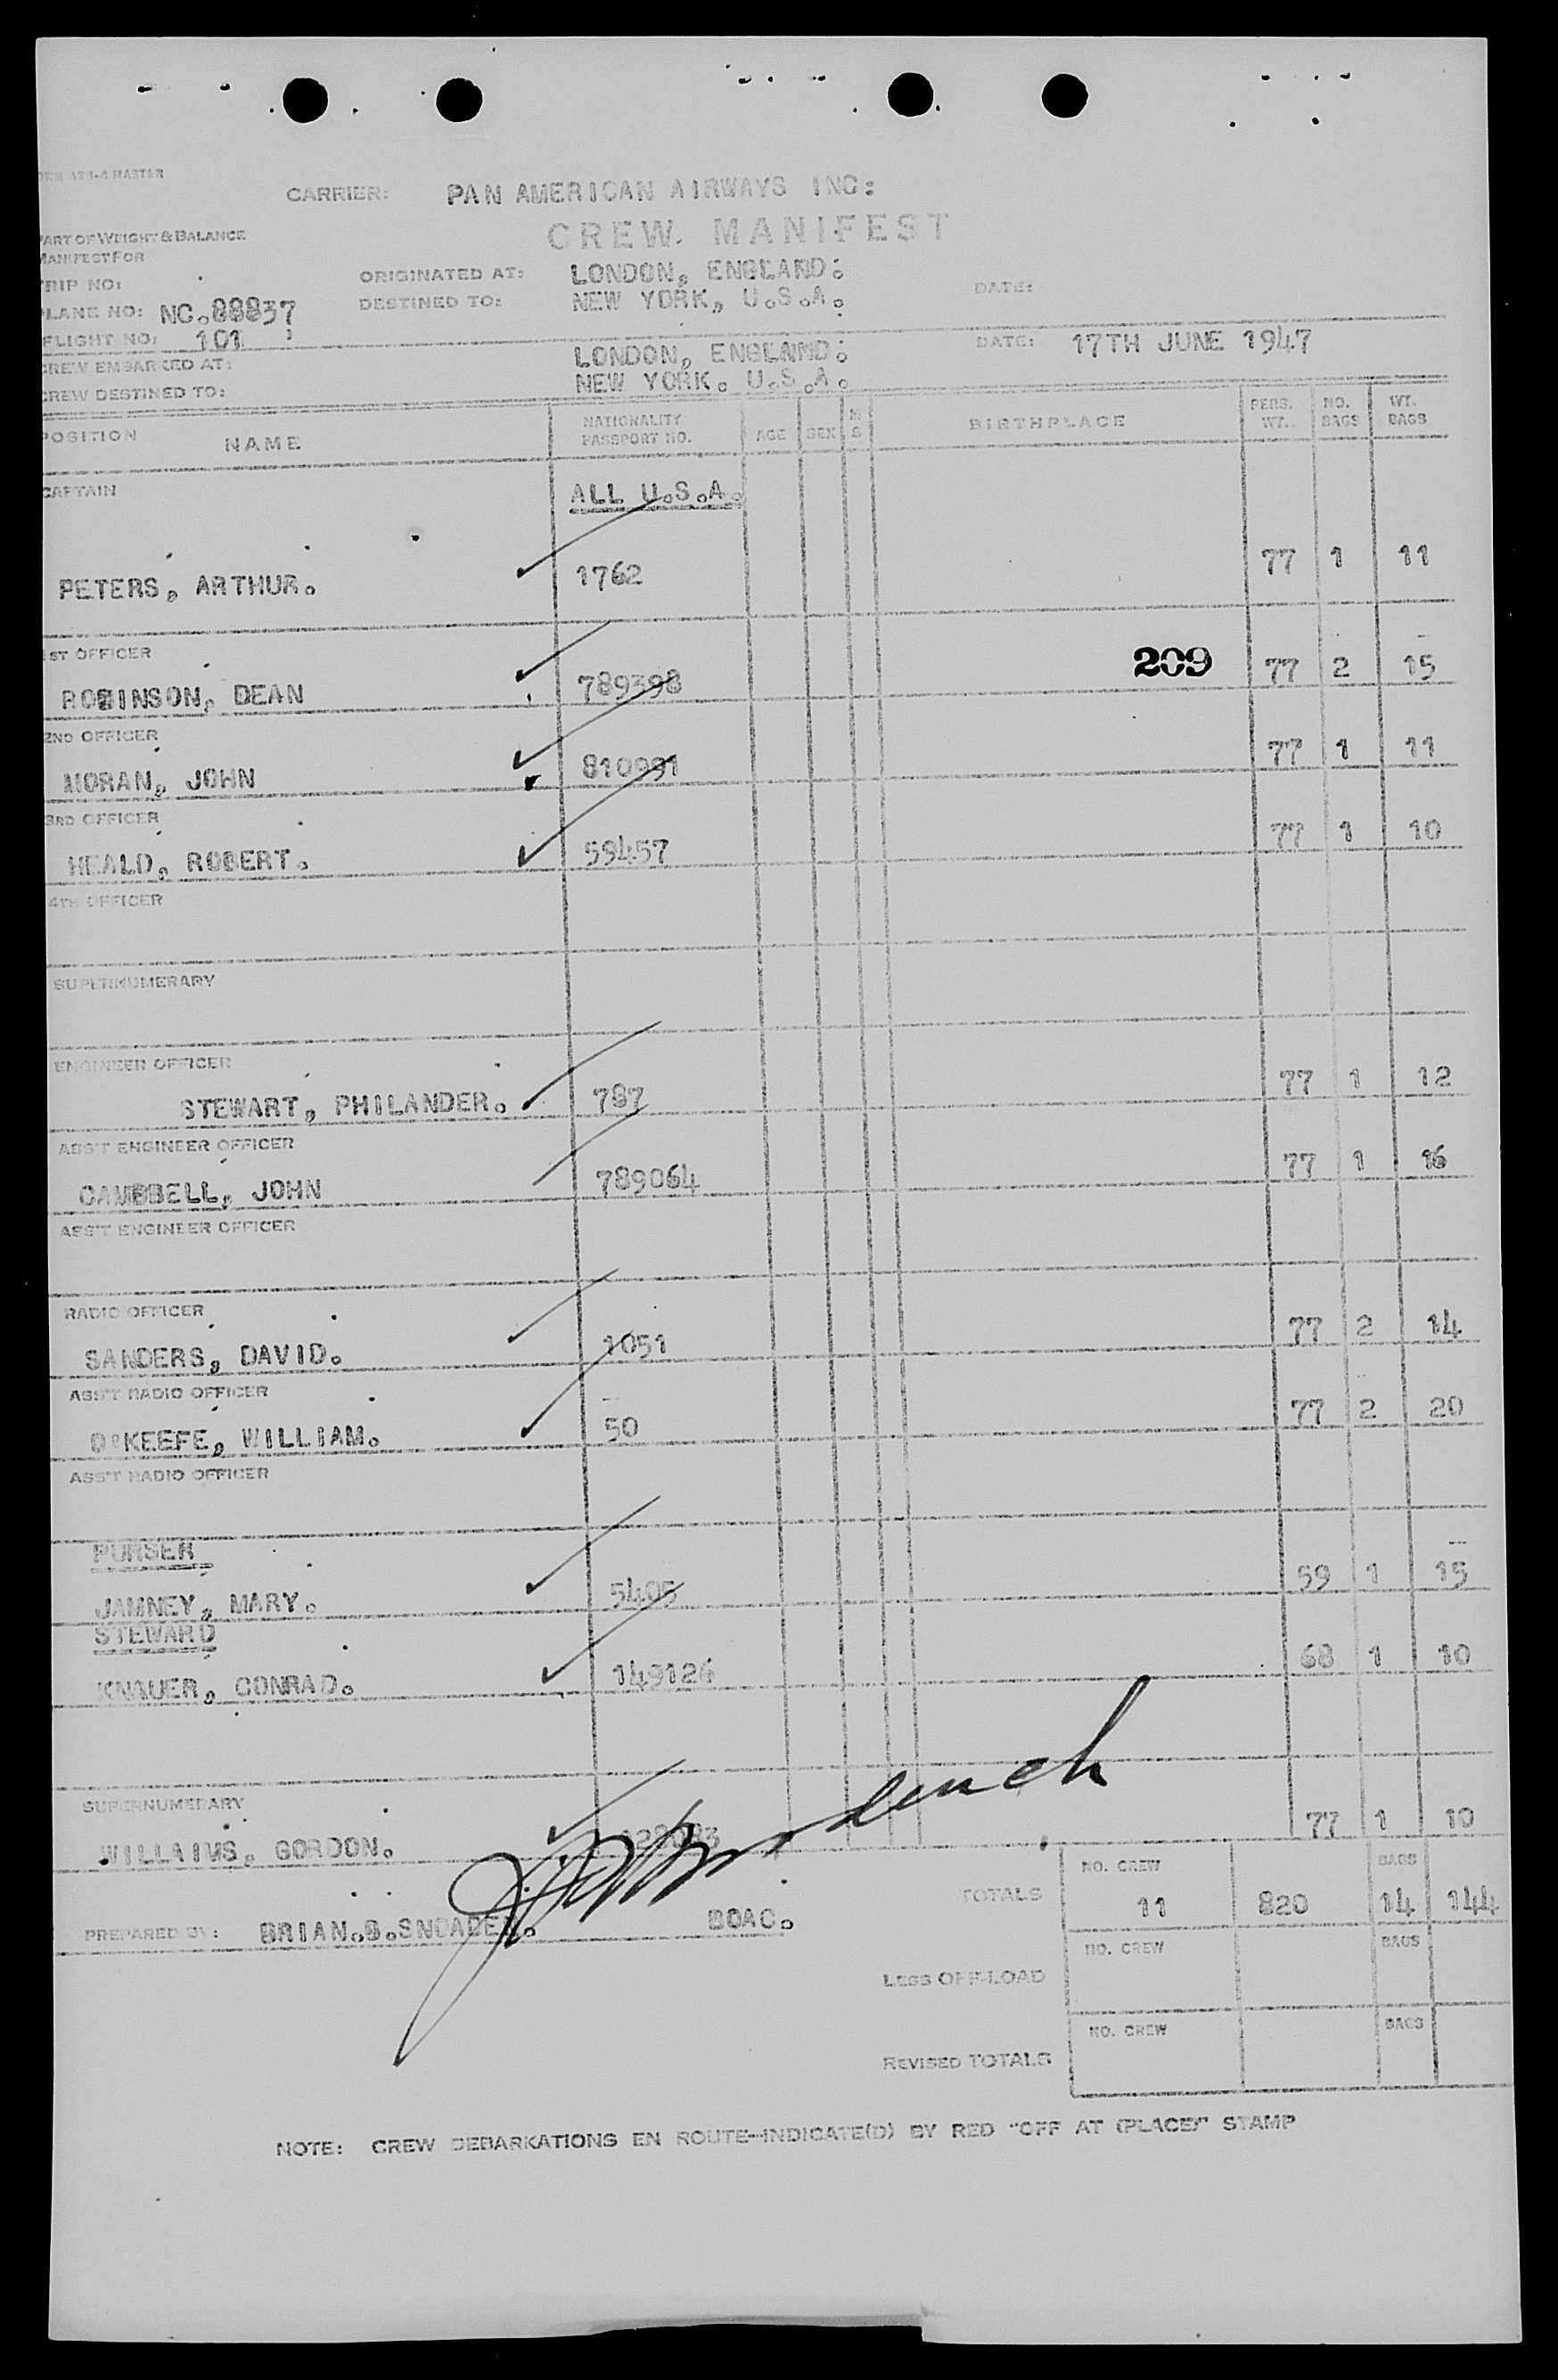 CARRIER: PAN AMERICAN AIRWAYS INC:
CREW MANIFEST
PART OF WEIGHT & BALANCE
MANIFEST FOR
TRIP NO:
ORIGINATED AT: LONDON, ENGLAND:
PLANE NO: NC.88837
DESTINED TO: NEW YORK, U.S.A.
DATE:
FLIGHT NO: 101
CREW EMBARKED AT: LONDON, ENGLAND:
DATE: 17TH JUNE 1947
CREW DESTINED TO: NEW YORK. U.S.A.
POSITION NAME NATIONALITY PASSPORT NO. AGE SEX M S BIRTHPLACE PERS. WT. NO. BAGS WT. BAGS
CAPTAIN ALL U.S.A.
PETERS, ARTHUR. 1762 77 1 11
1ST OFFICER
ROBINSON, DEAN 789398 209 77 2 15
2ND OFFICER
MORAN, JOHN 810991 77 1 11
3RD OFFICER
HEALD, ROBERT. 59457 77 1 10
4TH OFFICER
SUPERNUMERARY
ENGINEER OFFICER
STEWART, PHILANDER. 787 77 1 12
ASS'T ENGINEER OFFICER
CAMPBELL, JOHN 789064 77 1 16
ASS'T ENGINEER OFFICER
RADIO OFFICER
SANDERS, DAVID. 1051 77 2 14
ASS'T RADIO OFFICER
O'KEEFE, WILLIAM. 50 77 2 20
ASS'T RADIO OFFICER
PURSER
JAMNEY, MARY. 5405 59 1 15
STEWARD
KNAUER, CONRAD. 149126 68 1 10
SUPERNUMERARY
WILLAIMS, GORDON. 77 1 10
TOTALS NO. CREW 11 820 BAGS 14 144
PREPARED BY: BRIAN. BOAC.
LESS OFF-LOAD NO. CREW BAGS
REVISED TOTALS NO. CREW BAGS
NOTE: CREW DEBARKATIONS EN ROUTE—INDICATE(D) BY RED "OFF AT (PLACE)" STAMP